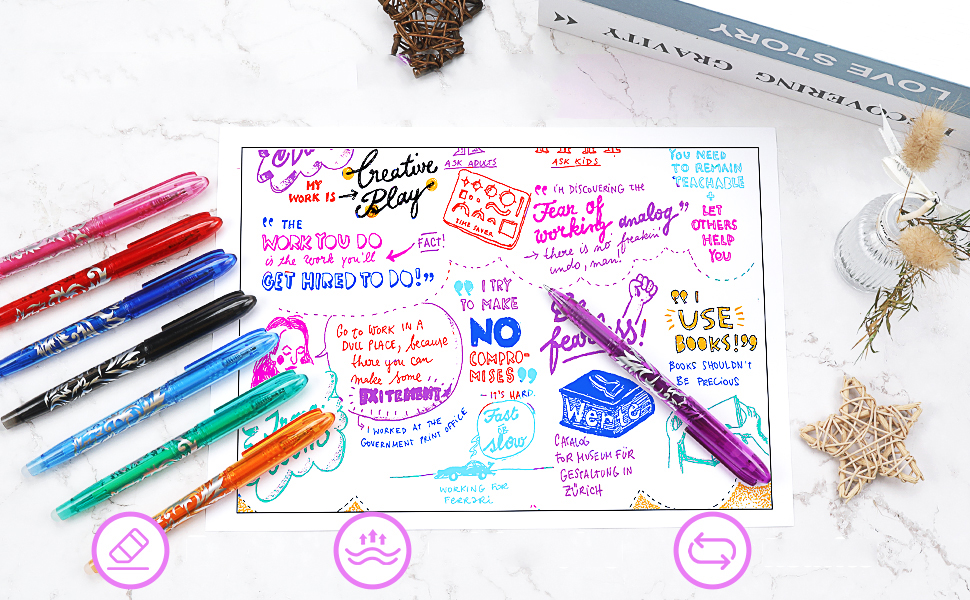 LOVE STORY
DISCOVERING GRAVITY
MY
WORK IS
Creative
Play
ASK ADULTS
ASK KIDS
TIME SAVER
YOU NEED
TO REMAIN
TEACHABLE
+
LET
OTHERS
HELP
YOU
“ I'M DISCOVERING THE
Fear of
working analog”
there is no freakin'
undo, man.
“ THE
WORK YOU DO
is the work you'll
GET HIRED TO DO!”
FACT!
“ I TRY
TO MAKE
NO
COMPRO-
MISES”
— IT'S HARD.
fearless!
“ I
USE
BOOKS!”
BOOKS SHOULDN'T
BE PRECIOUS
Go to WORK IN A
DULL PLACE, because
there you can
make some
EXITEMENT
I WORKED AT THE
GOVERNMENT PRINT OFFICE
Fast
is
slow
WORKING FOR
FERRARI.
CATALOG
FOR MUSEUM FÜR
GESTALTUNG IN
ZÜRICH